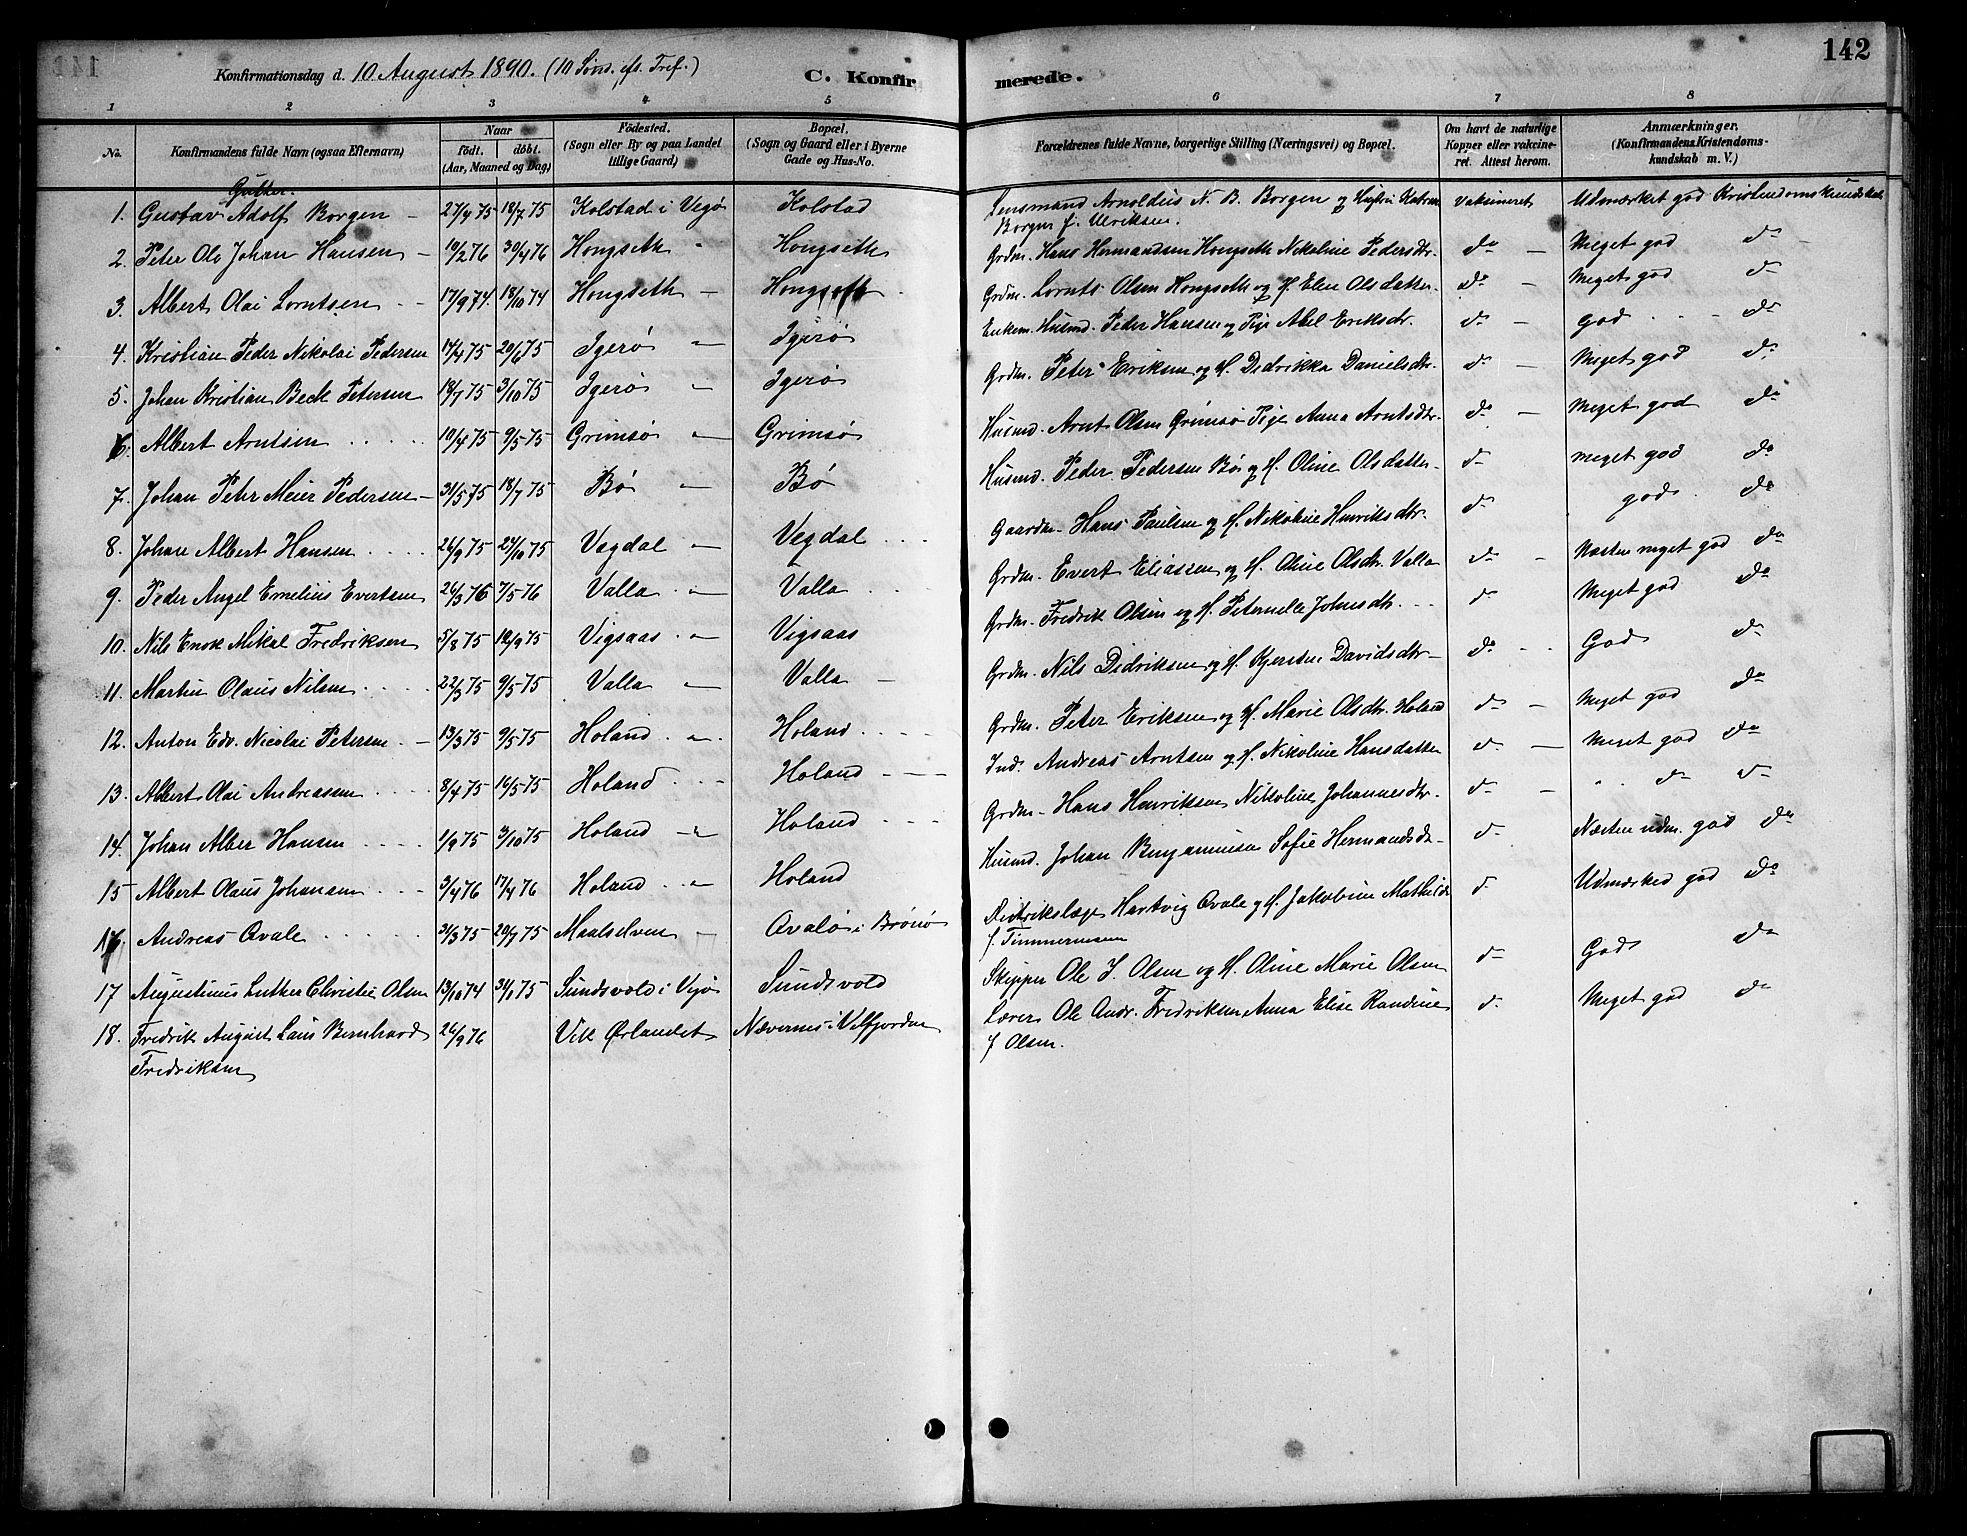 142
Konfirmationsdag d. 10 August 1890. (10 Sønd. eft. Tref.) C. Konfirmerede.
1 2 3 4 5 6 7 8
No. Konfirmandens fulde Navn (ogsaa Efternavn) Naar födt. döbt. (Aar, Maaned og Dag) Födested. (Sogn eller By og paa Landet tillige Gaard) Bopæl. (Sogn og Gaard eller i Byerne Gade og Hus-No. Forældrenes fulde Navne, borgerlige Stilling (Næringsvei) og Bopæl. Om havt de naturlige Kopper eller vakcineret. Attest herom. Anmærkninger. (Konfirmandens Kristendomskundskab m. V.)
Gutter.
1. Gustav Adolf Borgen - 27/4 75 18/7 75 Kolstad i Vegø Kolstad Lensmand Arnoldus N. B. Borgen og Hustru Katrine Vaksineret Udmærket god Kristendomskundskab
Borgen f. Ulriksen.
2. Peter Ole Johan Hansen - 10/2 76 30/4 76 Hongseth " Hongseth Grdm. Hans Hermandsen Hongseth Nikoline Pedersdtr. do - Meget god do -
3. Albert Olai Lorntsen - - 17/9 74. 18/10 74 Hongseth - Hongseth Grdm. Lornts Olsen Hongseth og H. Elen Olsdatter. do - Meget god do
4. Kristian Peder Nikolai Pedersen 14/4 75 20/6 75 Igerø " Igerø Enkem. Husmd. Peder Hansen og Pige Abel Eriksdr. do - god - - - do
5. Johan Kristian Beck Petersen 18/7 75 3/10 75 Igerø " Igerø Grdm. Peter Eriksen og H. Dedrikka Danielsdtr. do - Meget god do
6. Albert Arntsen . . . . . 10/4 75 9/5 75 Grimsø " Grimsø Husmd. Arnt Olsen Grimsø Pige Anna Arntsdtr. do - Meget god do
7. Johan Peter Meier Pedersen - 31/5 75 18/7 75 Bø " Bø Husmd. Peder Pedersen Bø og H. Oline Olsdatter. do meget god do
8. Johan Albert Hansen . . . . 26/9 75 24/10 75 Vegdal " Vegdal . . . Gaardm. Hans Paulsen og H. Nikoline Henriksdtr. do god. do
9. Peder Angel Emelius Evertsen 26/3 76 7/5 76 Valla . " Valla . . . Grdm. Evert Eliassen og H. Oline Olsdtr. Valla do - Næsten meget god do
10. Nils Enok Mikal Fredriksen 5/8 75 12/9 75 Vigsaas . " Vigsaas Grdm. Fredrik Olsen og H. Peternelle Johnsdtr. . . . do Meget god do
11. Martin Olaus Nilsen . . . . 22/3 75 9/5 75 Valla " Valla - Grdm. Nils Didriksen og H. Kjersten Davidsdtr - do . . God do
12. Anton Edv. Nicolai Petersen . - 13/3 75 9/5 75 Holand . " . Holand . . . . Grdm. Peter Eriksen og H. Marie Olsdtr. Holand do - Meget god do
13. Albert Olai Andreassen . . . . 8/4 75 16/5 75 Holand . . - Holand - - - Ind. Andreas Arntsen og H. Nikoline Hansdatter do - Meget god do
14. Johan Alber Hansen . . . . 1/9 75 3/10 75 Holand - " Holand . . . Grdm. Hans Henriksen Nikoline Johannesdtr. do - " do do
15 Albert Olaus Johansen . . . 3/4 76 17/4 76 Holand . . " Holand Husmd. Johan Benjaminsen Sofie Hermandsdr. do Næsten udm. god do
16. Andreas Qvale . . . . . 31/3 75 20/7 75 Maalselven - Qvalø i Brønø Distrikslæge Hartvig Qvale og H. Jakobine Mathilde do Udmærked god do
f. Timmermann
17 Augustinus Luther Christie Olsen 13/10 74 31/1 75 Sundsvold i Vegø Sundsvold Skipper Ole J. Olsen og H. Oline Marie Olsen do God do
18. Fredrik August Laus Bernhard 26/9 76 Vik Ørlandet Nævernes i Velfjorden Lærer Ole Andr. Fredriksen, Anna Elise Randine do Meget god do
Fredriksen f Olsen.